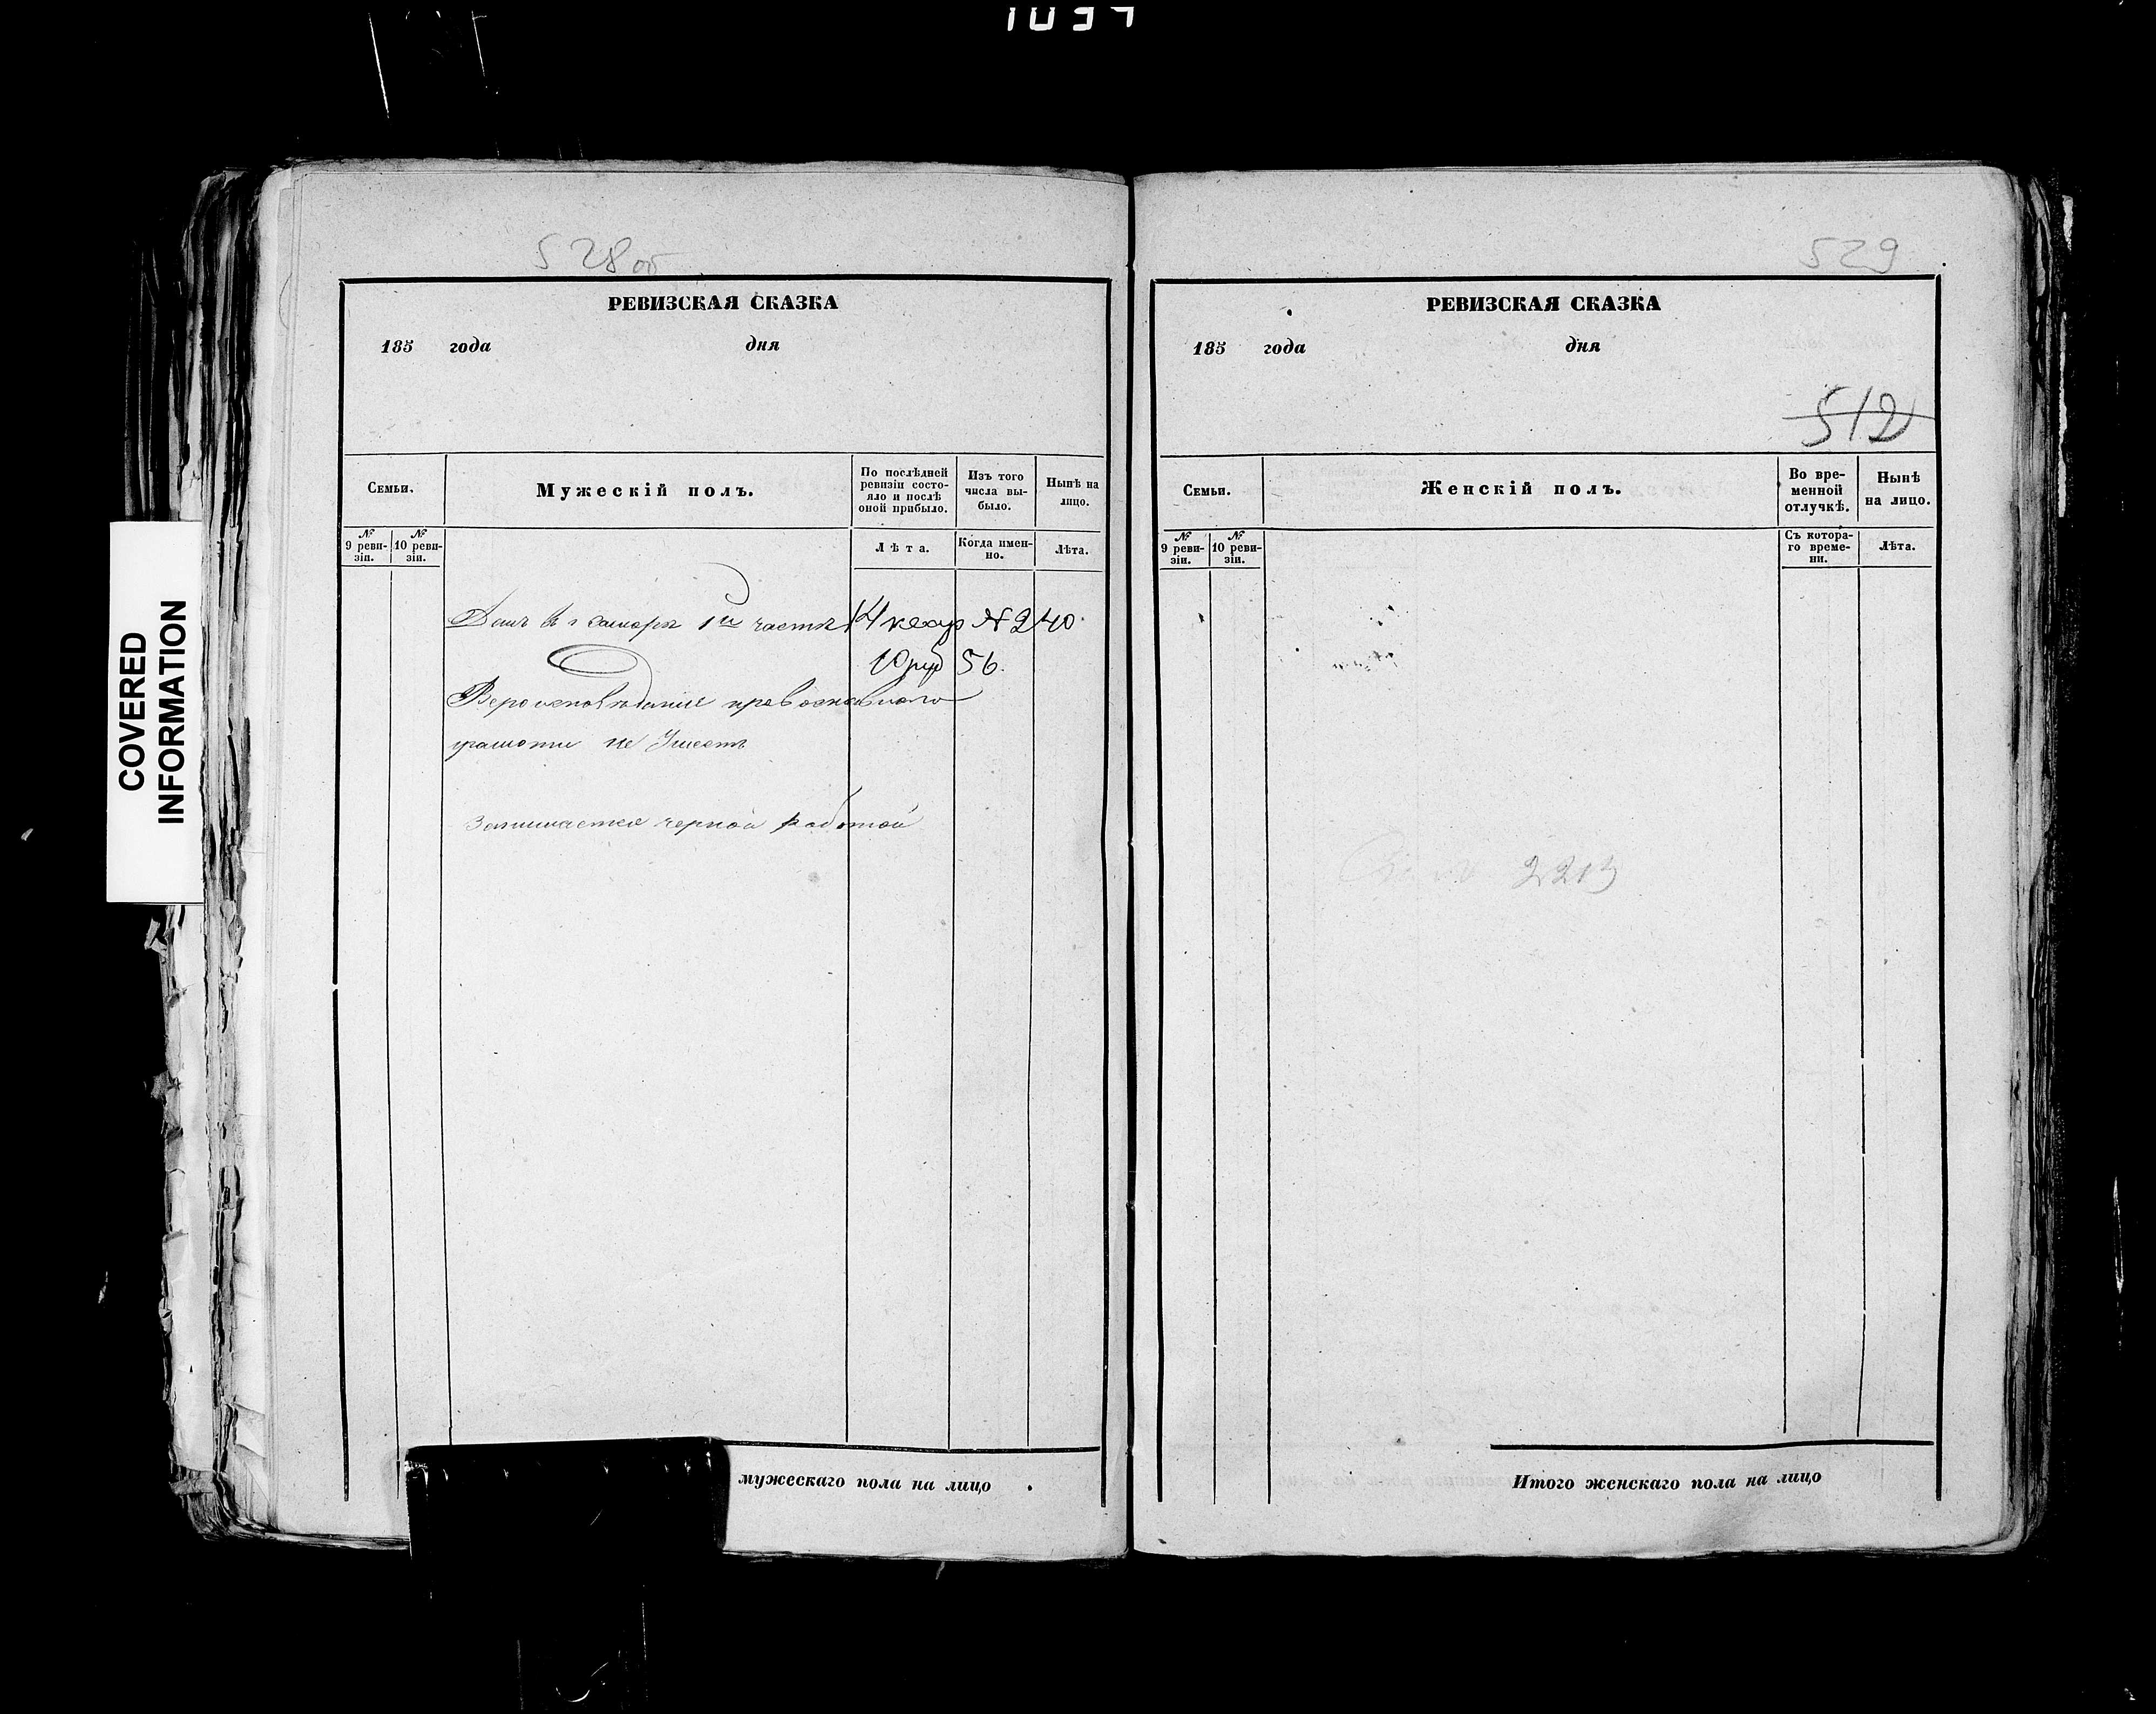 528 об
РЕВИЗСКАЯ СКАЗКА
185 года дня
Семьи.
Мужескій полъ.
По послѣдней ревизіи состояло и послѣ оной прибыло.
Изъ того числа выбыло.
Нынѣ на лицо.
№ 9 ревизіи.
№ 10 ревизіи.
Лѣта.
Когда именно.
Лѣта.
Домъ въ г Самарѣ 1й части 14 квар № 240
10 руб 56.
Вероисповѣдания православного
грамоти не Умеетъ
Занимается черной работой
мужескаго пола на лицо
529
РЕВИЗСКАЯ СКАЗКА
185 года дня
512
Семьи.
Женскій полъ.
Во временной отлучкѣ.
Нынѣ на лицо.
№ 9 ревизіи.
№ 10 ревизіи.
Съ котораго времени.
Лѣта.
2213
Итого женскаго пола на лицо
COVERED
INFORMATION